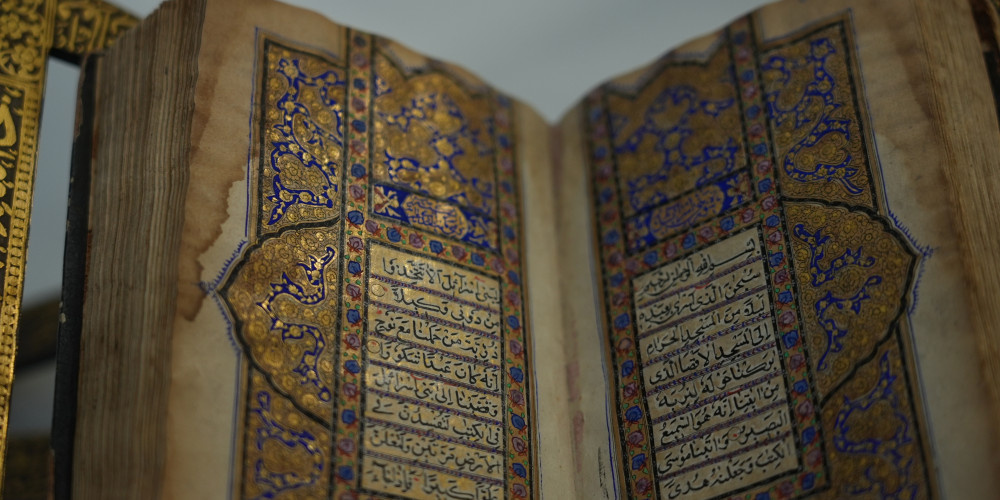 بسم الله الرحمن الرحيم
سُبْحٰنَ الَّذِي اَسْرٰى بِعَبْدِهِ
لَيْلًا مِنَ الْمَسْجِدِ الْحَرَامِ
اِلَى الْمَسْجِدِ الْاَقْصَا الَّذِي
بٰرَكْنَا حَوْلَهُ لِنُرِيَهُ
مِنْ اٰيٰتِنَا اِنَّهُ هُوَ السَّمِيعُ
الْبَصِيرُ وَاٰتَيْنَا مُوسَى
الْكِتٰبَ وَجَعَلْنٰهُ هُدًى
لِبَنِي اِسْرَائِلَ اَلَّا تَتَّخِذُوا
مِنْ دُونِي وَكِيلًا
ذُرِّيَّةَ مَنْ حَمَلْنَا مَعَ نُوحٍ
اِنَّهُ كَانَ عَبْدًا شَكُورًا
وَقَضَيْنَا اِلٰى بَنِي اِسْرَائِلَ
فِي الْكِتٰبِ لَتُفْسِدُنَّ فِي
الْاَرْضِ مَرَّتَيْنِ وَلَتَعْلُنَّ
عُلُوًّا كَبِيرًا فَاِذَا جَاءَ